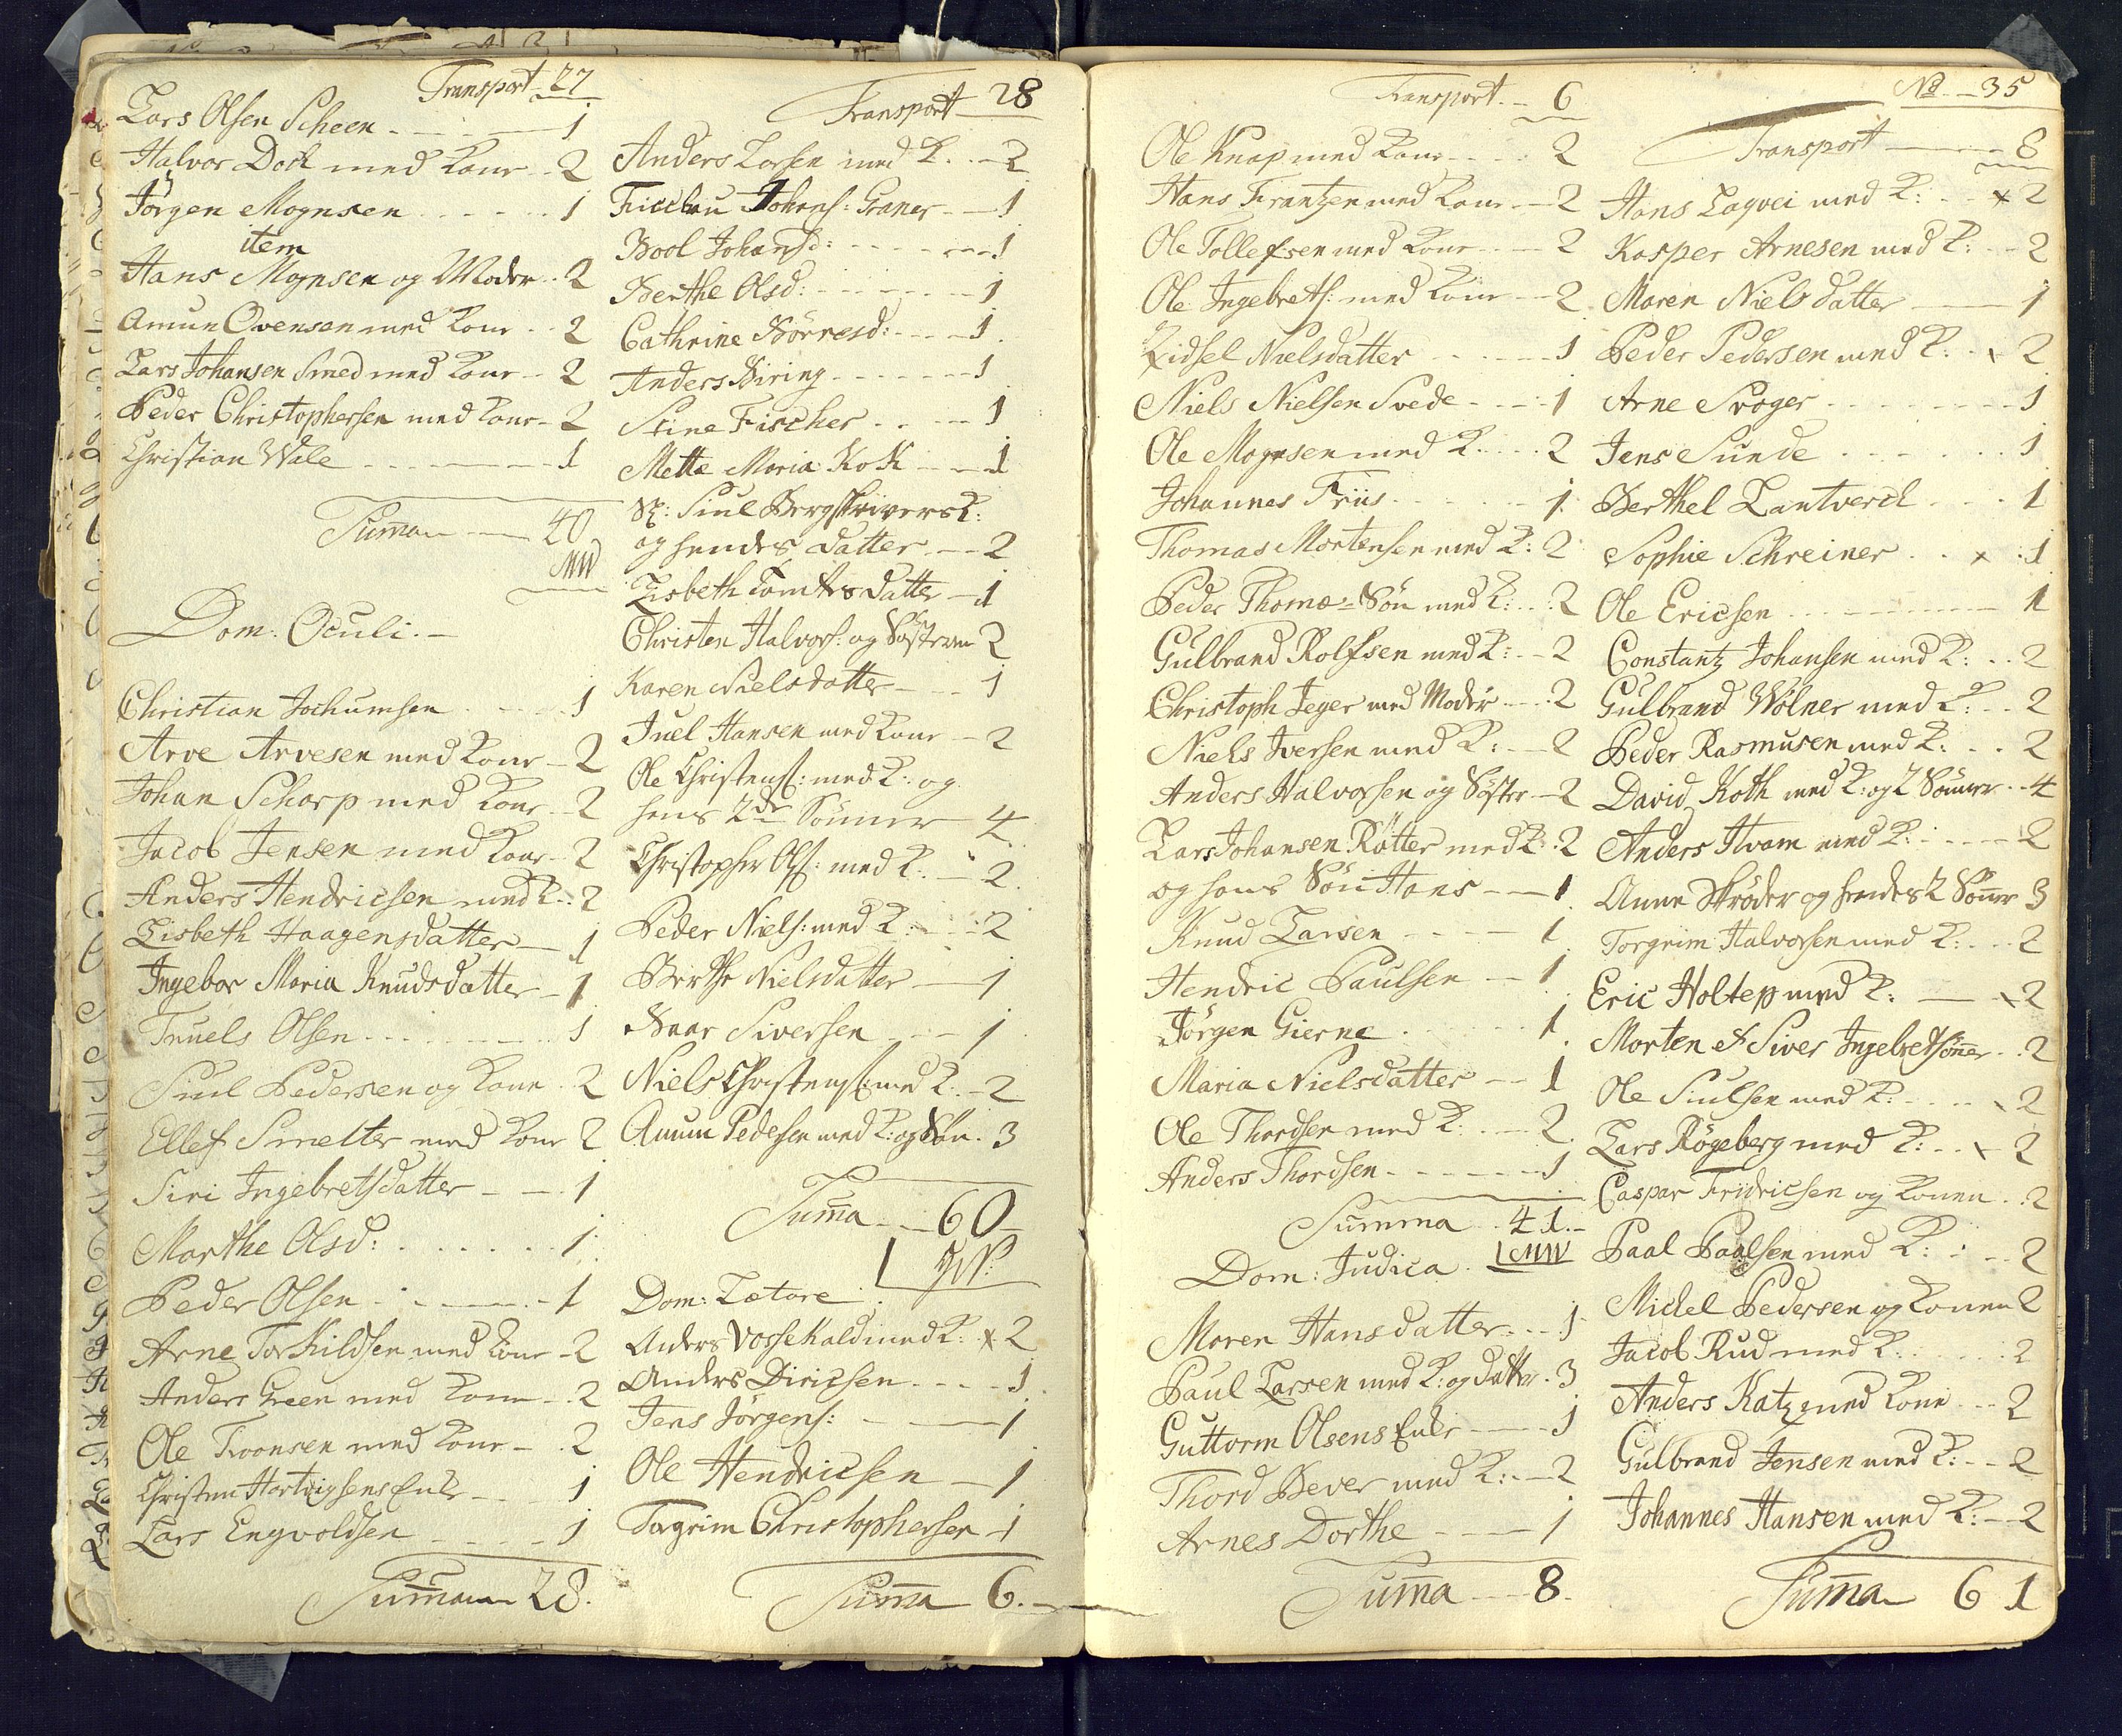 Transport 27
Lars Olsen Scheen 1
Halvor Dock med Kone 2
Jörgen Mognsen 1
item
Hans Mognsen og Moder 2
Amun Ovensen med Kone 2
Lars Johansen Smed med Kone 2
Peder Christophersen med Kone 2
Christian Wale 1
Suma 40
MW
Dom: Oculi.
Christian Jochumsen 1
Arve Arvesen med Kone 2
Johan Scharp med Kone 2
Jacob Jensen med Kone 2
Anders Hendricsen med K: 2
Lisbeth Haagensdatter 1
Ingebor Maria Knudsdatter 1
Truels Olsen 1
Siul Pedersen og Kone 2
Ellef Smelter med Kone 2
Siri Ingebretsdatter 1
Marthe Olsd: 1
Peder Olsen 1
Arne Torkildsen med Kone 2
Anders Green med Kone 2
Ole Tvonsen med Kone 2
Christen Hartvigsens Enke 1
Lars Engvoldsen 1
Suma 28.
Transport 28
Anders Larsen med K. 2
Johans: Graner 1
Bool Johansd: 1
Berthe Olsd: 1
Cathrine Börresd: 1
Anders Biring 1
Stine Fischer 1
Mette Maria Kok 1
Siul Bergskrivers K:
og hendes datter 2
Lisbeth datter 1
Christen Halvors: og Søsteren 2
Karen Nielsdatter 1
Juel Hansen med Kone 2
Ole Christens: med K: og
hans 2de Sönner 4
Christopher Ols: med K. 2
Peder Niels: med K: 2
Berthe Nielsdatter 1
Baar Siversen 1
Niels Christens: med K. 2
Amun Pedersen med K: og Sön. 3
Suma 60
Dom: Lætare
Anders Vossekald med K: x 2
Anders Diricsen 1
Jens Jörgens: 1
Ole Hendricsen 1
Torgrim Christophersen 1
Suma 6.
Transport 6
Ole Knap med Kone 2
Hans Frantzen med Kone 2
Ole Tollefsen med Kone 2
Ole Ingebrets: med Kone 2
Lidsel Nielsdatter 1
Niels Nielsen Svede 1
Ole Mognsen med K. 2
Johannes Friis 1
Thomas Mortensen med K: 2
Peder Thomæ-Sön med K: 2
Gulbrand Rolfsen med K: 2
Christoph Jeger med Moder 2
Niels Iversen med K: 2
Anders Halvorsen og Söster 2
Lars Johansen Rötter med K: 2
og hans Sön Hans 1
Knud Larsen 1
Hendric Paulsen 1
Jörgen Gierne 1
Maria Nielsdatter 1
Ole Thordsen med K: 2
Anders Thordsen 1
Summa 41.
Dom: Judica. MW
Maren Hansdatter 1
Paul Larsen med K: og datter 3
Guttorm Olsens Enke 1
Thord Bever med K: 2
Arnes Dorthe 1
Suma 8.
No 35
Transport 8
Hans Lagvei med K: x 2
Kasper Arnesen med K: 2
Maren Nielsdatter 1
Peder Pedersen med K: 2
Arne Svoger 1
Jens Sunde 1
Berthel Lantverck 1
Sophie Schreiner x 1
Ole Ericsen 1
Constantz Johansen med K: 2
Gulbrand Wölner med K: 2
Peder Rasmusen med K: 2
David Koth med K: og 2 Sönner 4
Anders Hvam med K: 2
Anne Skröder og hendes 2 Sönner 3
Torgrim Halvorsen med K: 2
Eric Holtep med K: 2
Morten et Siver Ingebretsönner 2
Ole Siulsen med K: 2
Lars Rögeberg med K: 2
Caspar Fridricsen og Konen 2
Paal Paalsen med K: 2
Mickel Pedersen og Konen 2
Jacob Rud med K: 2
Anders Katz med Kone 2
Gulbrand Jensen med K: 2
Johannes Hansen med K: 2
Suma 61